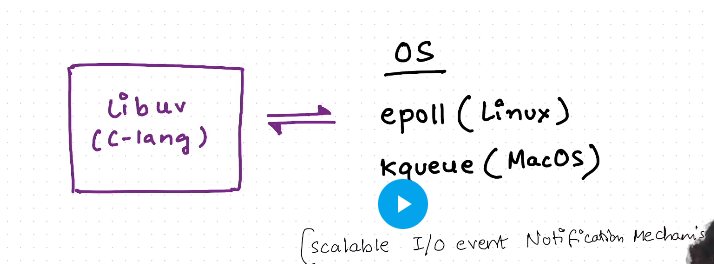 OS
Libuv
(C-lang)
epoll (Linux)
kqueue (MacOS)
(scalable I/O event Notification Mechanis